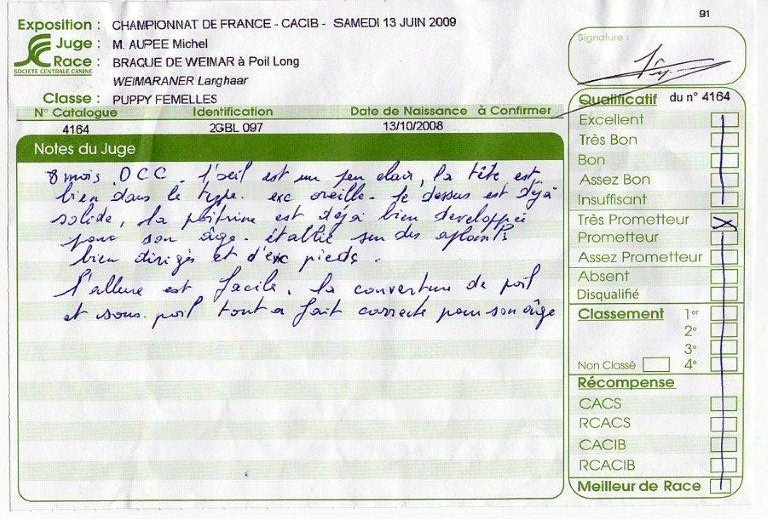 91
Exposition : CHAMPIONNAT DE FRANCE - CACIB - SAMEDI 13 JUIN 2009
Juge : M. AUPEE Michel
Race : BRAQUE DE WEIMAR à Poil Long
SOCIETE CENTRALE CANINE
WEIMARANER Larghaar
Classe : PUPPY FEMELLES
N° Catalogue Identification Date de Naissance à Confirmer
4164 2GBL 097 13/10/2008
Notes du Juge
8 mois. DCC. l'oeil est un peu clair, la tête est
bien dans le type. exc oreille. le dessus est déjà
solide, la poitrine est déjà bien developpée
pour son âge. établie sur des aplombs
bien dirigés et d'exc pieds.
l'allure est facile. la couverture de poil
et sous poil tout a fait correcte pour son âge
Signature :
Qualificatif du n° 4164
Excellent
Très Bon
Bon
Assez Bon
Insuffisant
Très Prometteur X
Prometteur
Assez Prometteur
Absent
Disqualifié
Classement 1er
2e
3e
Non Classé 4e
Récompense
CACS
RCACS
CACIB
RCACIB
Meilleur de Race